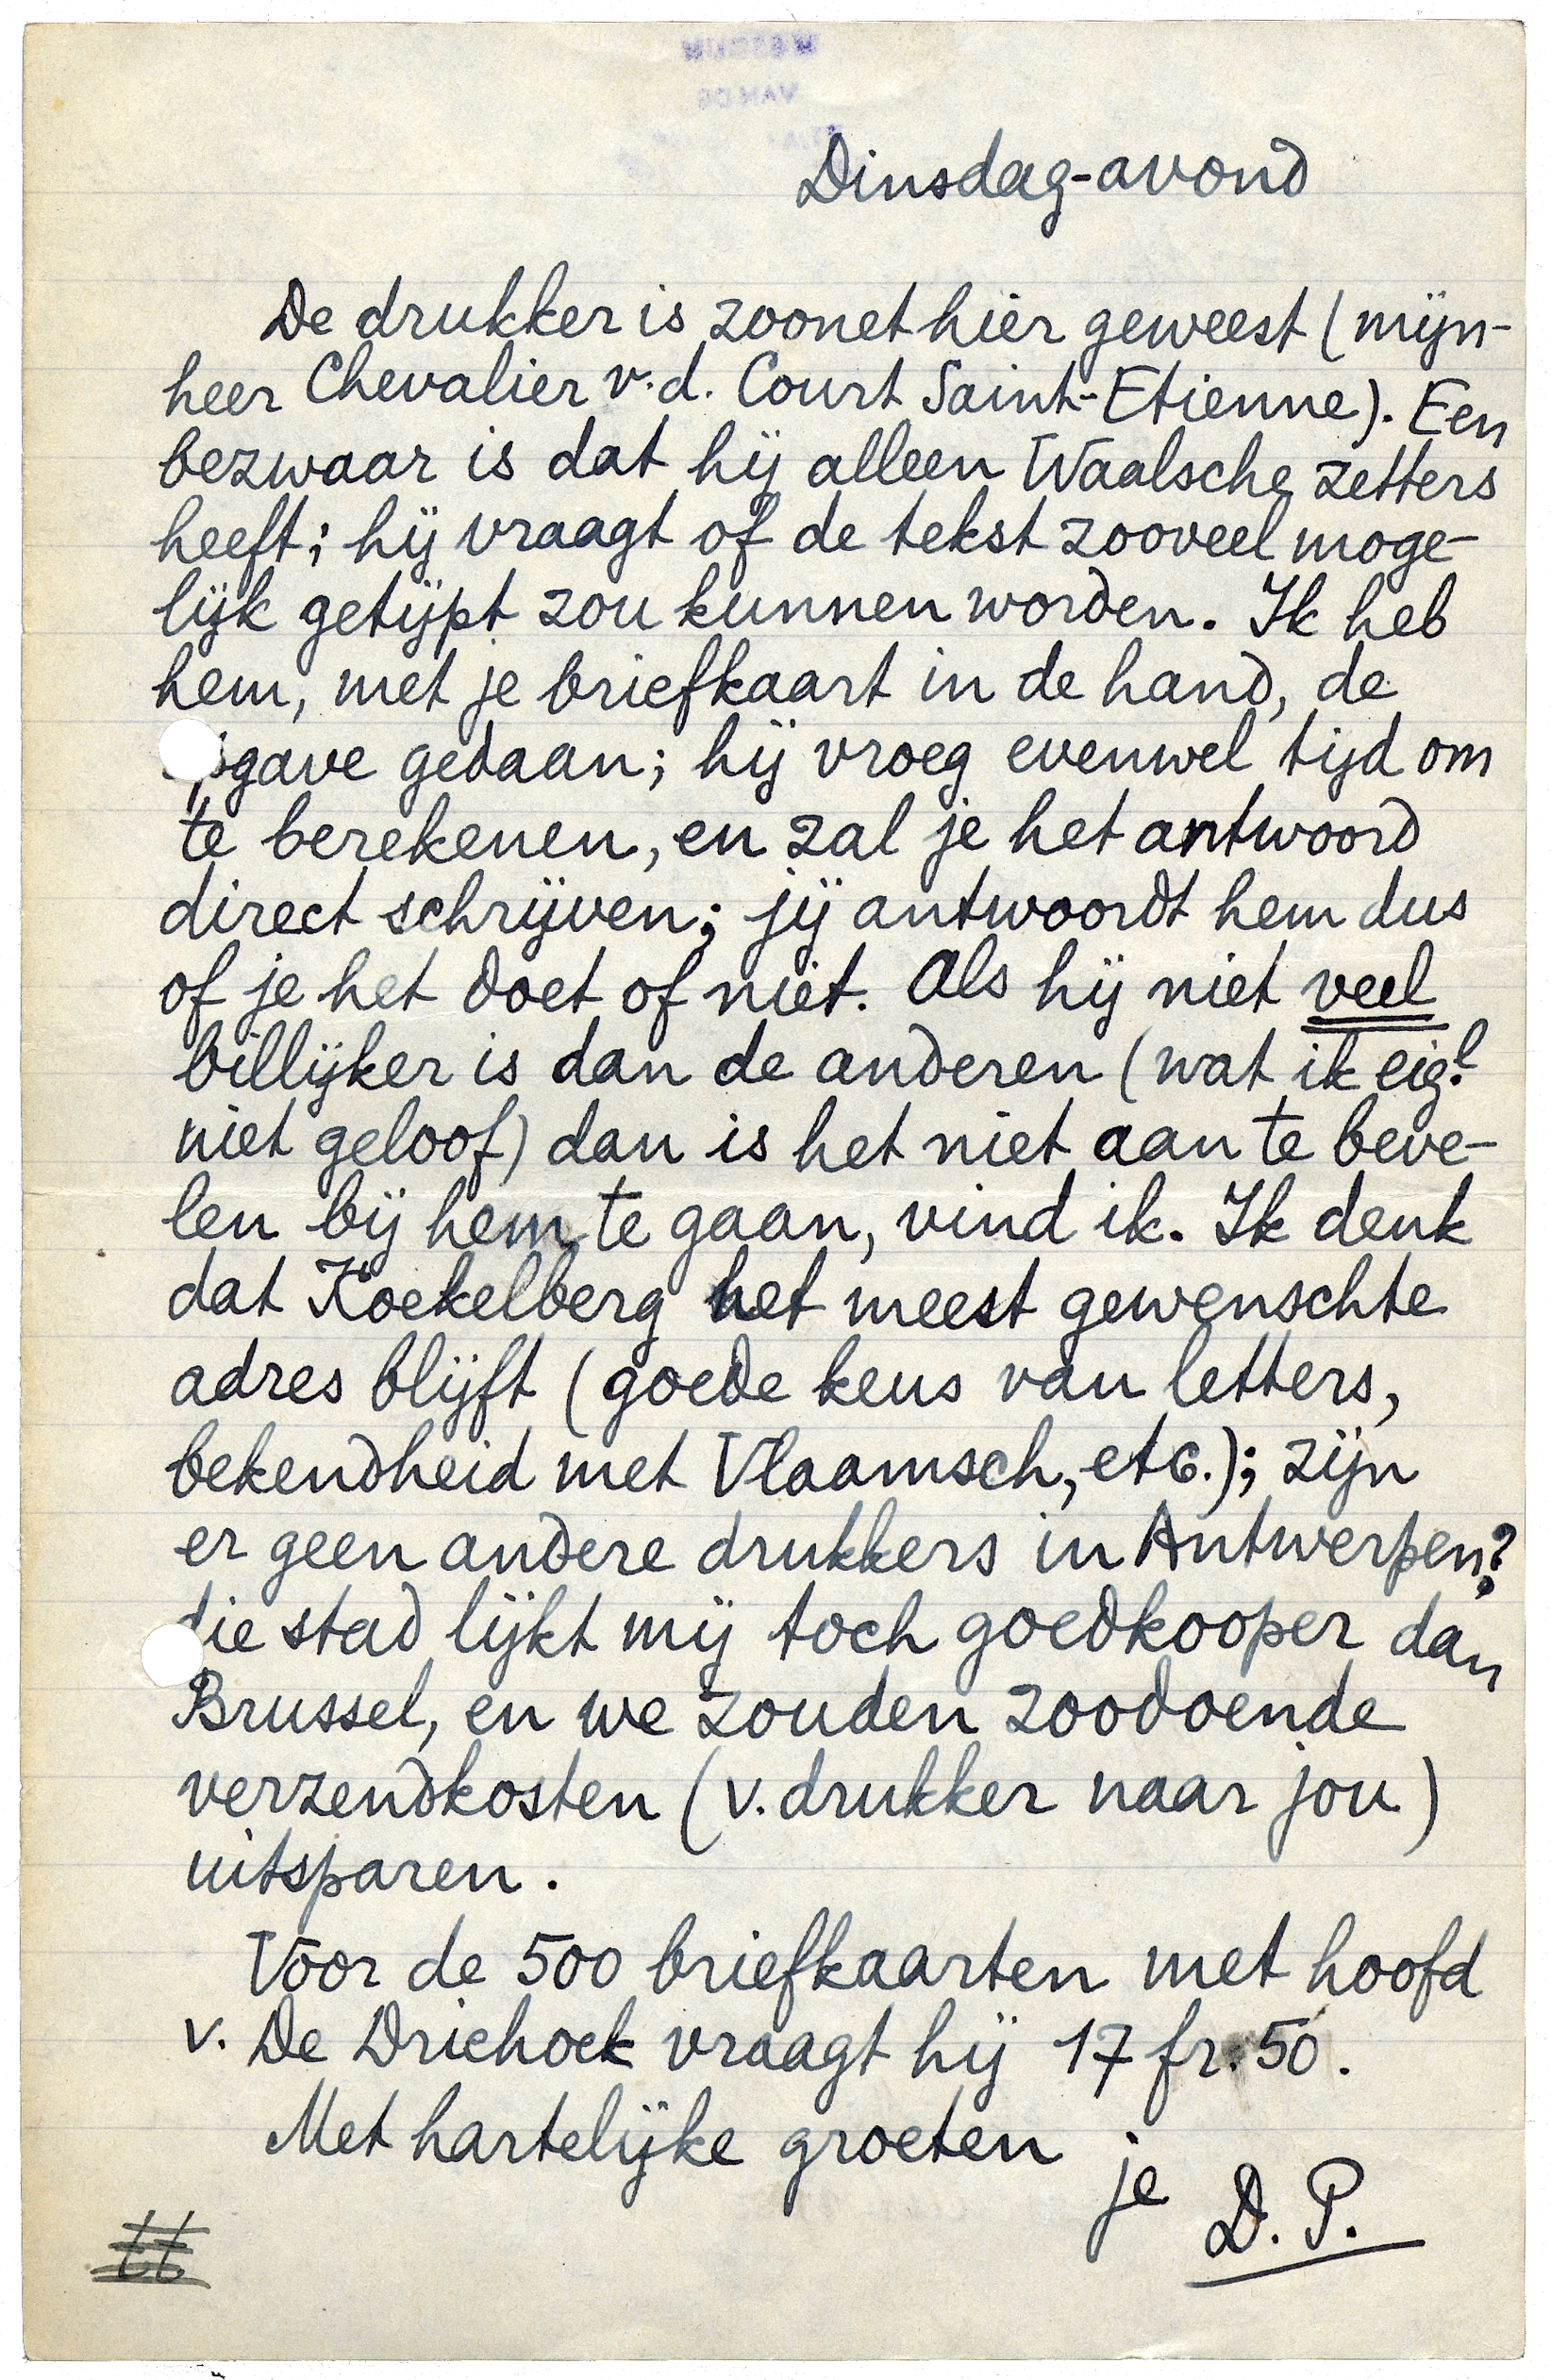 Dinsdag-avond
De drukker is zoonet hier geweest (mijn-
heer Chevalier v.d. Court Saint-Etienne). Een
bezwaar is dat hij alleen Waalsche zetters
heeft; hij vraagt of de tekst zooveel moge-
lijk getijpt zou kunnen worden. Ik heb
hem, met je briefkaart in de hand, de
opgave gedaan; hij vroeg evenwel tijd om
te berekenen, en zal je het antwoord
direct schrijven; jij antwoordt hem dus
of je het doet of niet. Als hij niet veel
billijker is dan de anderen (wat ik eig.l
niet geloof) dan is het niet aan te beve-
len bij hem te gaan, vind ik. Ik denk
dat Koekelberg het meest gewenschte
adres blijft (goede keus van letters,
bekendheid met Vlaamsch, etc.); zijn
er geen andere drukkers in Antwerpen?
die stad lijkt mij toch goedkooper dan
Brussel, en we zouden zoodoende
verzendkosten (v. drukker naar jou)
uitsparen.
Voor de 500 briefkaarten met hoofd
v. De Driehoek vraagt hij 17 fr. 50.
Met hartelijke groeten
je D. P.
tt